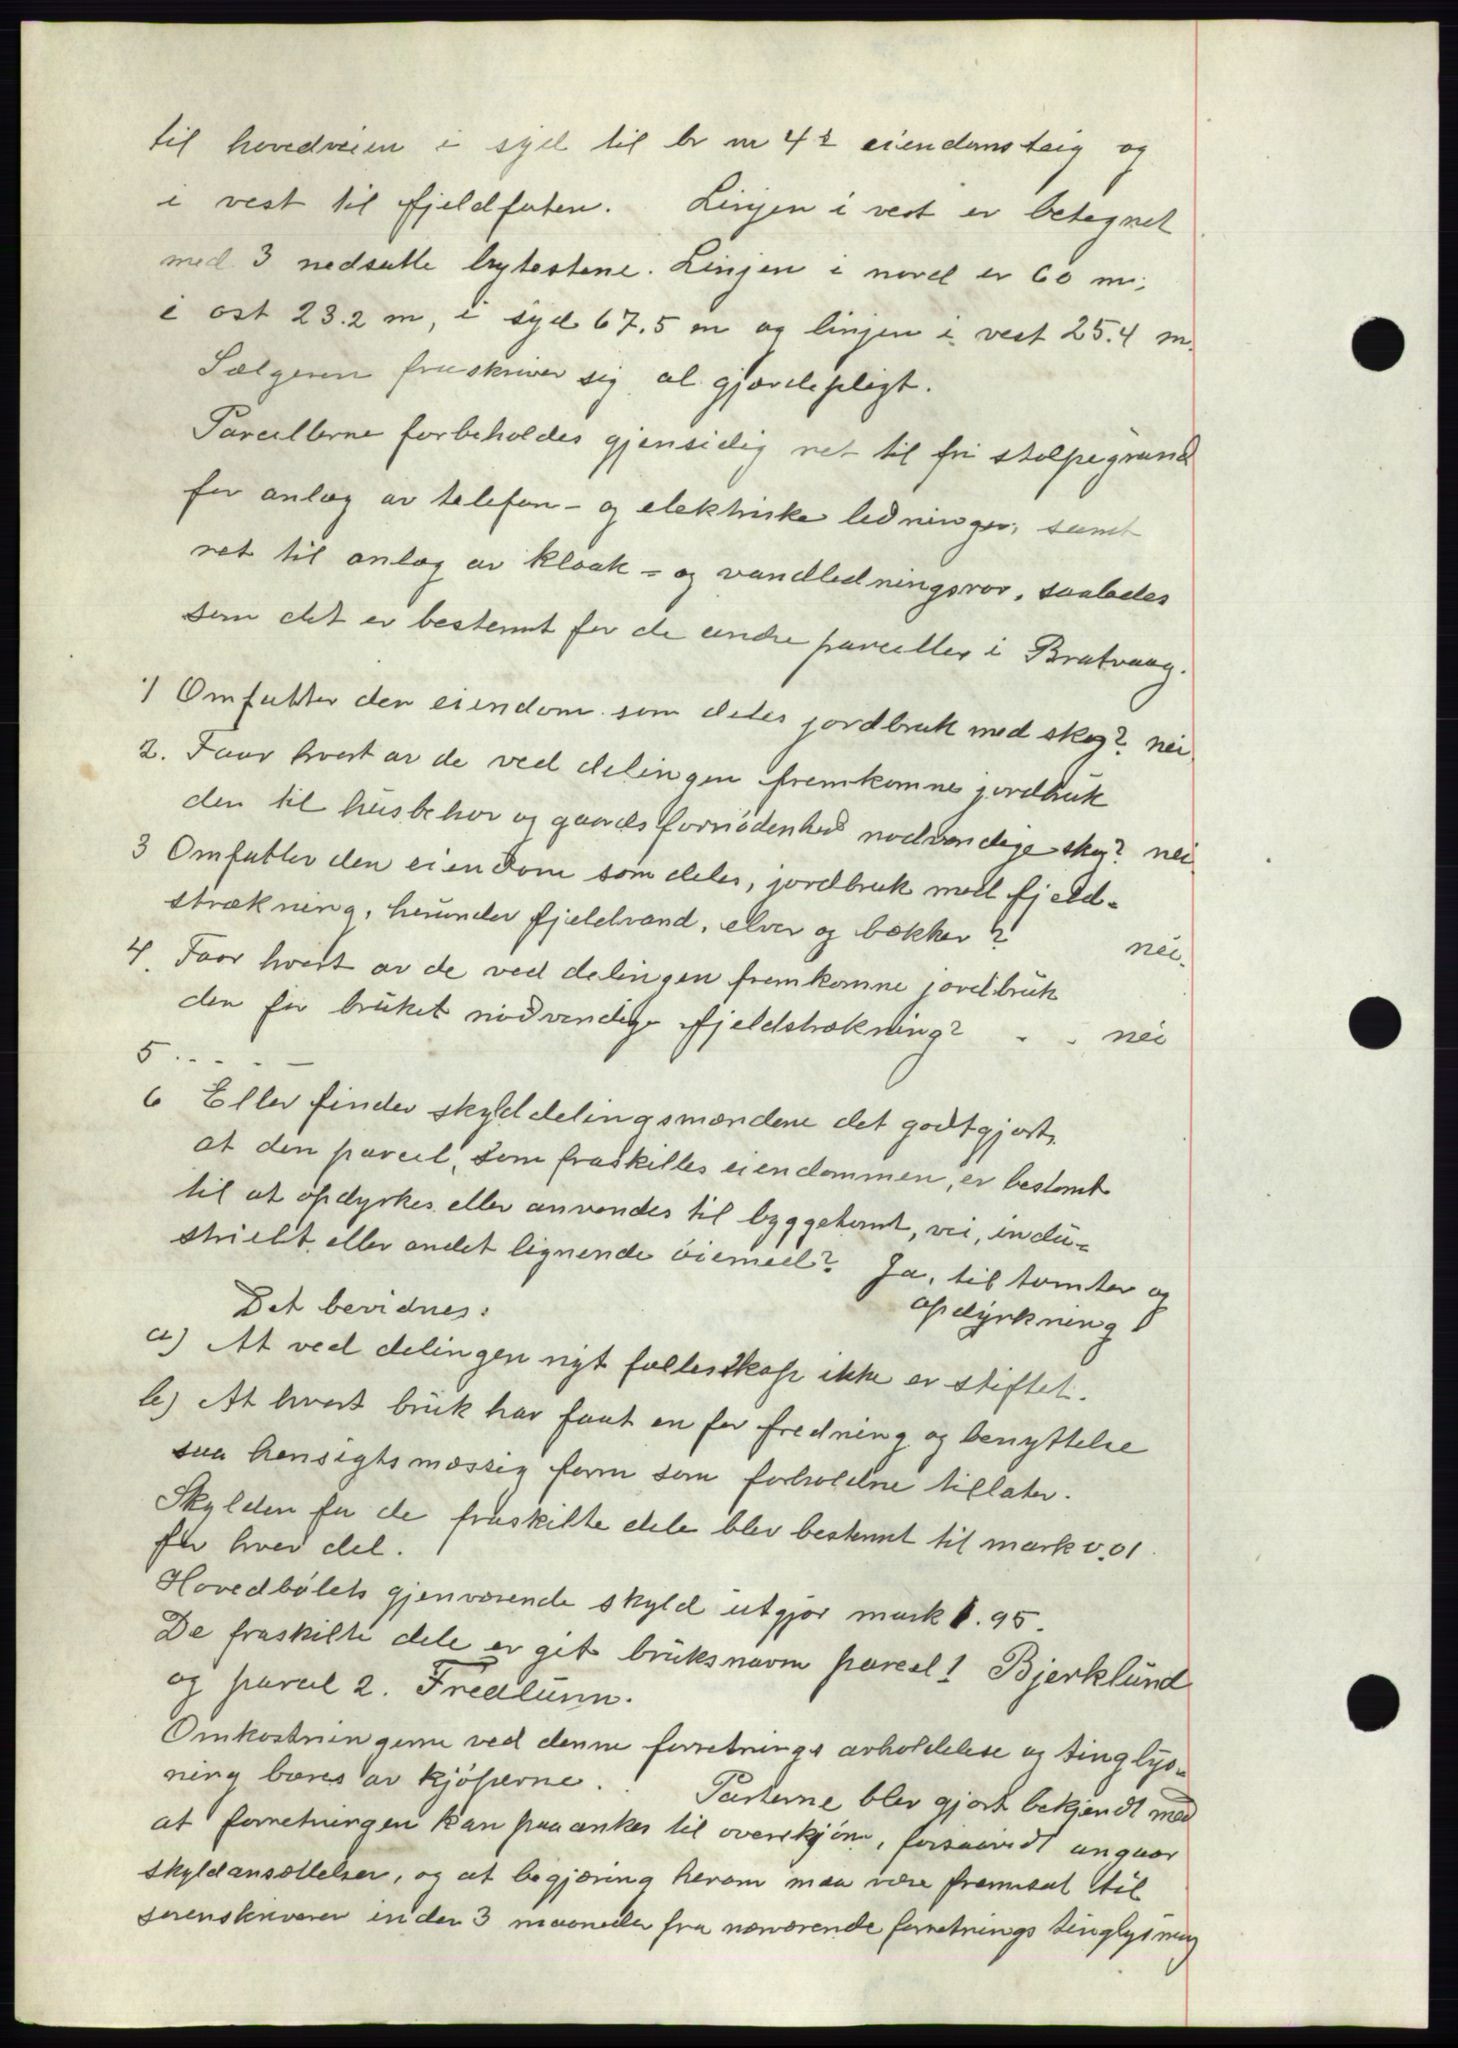 til hovedveien i syd til br nr 4s eiendomsteig og
i vest til fjeldfoten. Linjen i vest er betegnet
med 3 nedsatte bytestene. Linjen i nord er 60 m;
i ost 23.2 m, i syd 67.5 m og linjen i vest 25.4 m.
Sælgeren fraskriver sig al gjærdepligt.
Parcellerne forbeholdes gjensidig ret til fri stolpegrund
for anlæg av telefon- og elektriske ledninger, samt
ret til anlæg av kloak- og vandledningsrør, saaledes
som det er bestemt for de andre parceller i Bratvaag.
1 Omfatter den eiendom som deles jordbruk med skog? nei
2. Faar hvert av de ved delingen fremkomne jordbruk
den til husbehov og gaardsfornødenhed nødvendige skog? nei
3 Omfatter den eiendom som deles, jordbruk med fjeld-
strækning, herunder fjeldvand, elver og bækker? nei.
4. Faar hvert av de ved delingen fremkomne jordbruk
den for bruket nødvendige fjeldstrækning? - - nei
5 . - - - -
6 Eller finder skylddelingsmændene det godtgjort,
at den parcel, som fraskilles eiendommen, er bestemt
til at opdyrkes eller anvendes til byggetomt, vei, indu-
strielt eller andet lignende øiemed? Ja, til tomter og
opdyrkning
Det bevidnes:
a) At ved delingen nyt fællesskap ikke er stiftet.
b) At hvert bruk har faat en for fredning og benyttelse
saa hensigtsmæssig form som forholdne tillater.
Skylden for de fraskilte dele blev bestemt til mark 0.01
for hver del.
Hovedbølets gjenværende skyld utgjør mark 1.95.
De fraskilte dele er git bruksnavn parcel 1 Bjerklund
og parcel 2. Fredlunn.
Omkostningerne ved denne forretnings avholdelse og tinglys-
ning bæres av kjøperne. Parterne blev gjort bekjendt med
at forretningen kan paaankes til overskjøn, forsaavidt angaar
skyldansættelser, og at begjæring herom maa være fremsat til
sorenskriveren inden 3 maaneder fra nærværende forretnings tinglysning